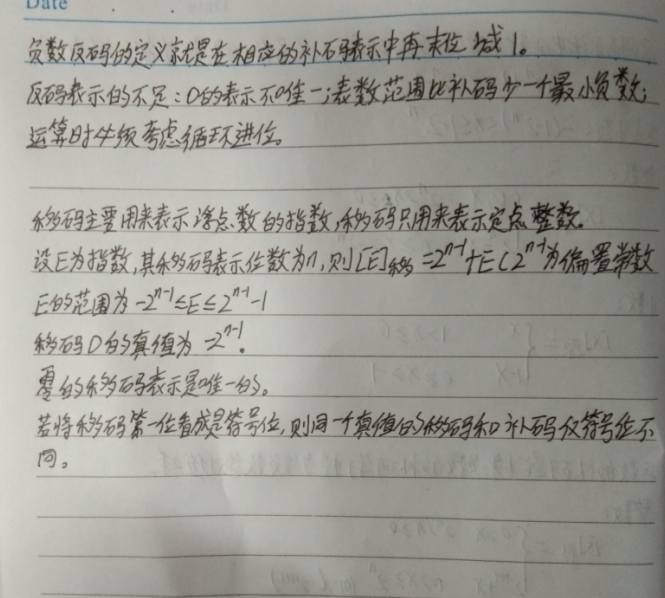 Date
负数反码的定义就是在相应的补码表示中再末位减1。
反码表示的不足：0的表示不唯一；表数范围比补码少一个最小负数；
运算时必须考虑循环进位。
移码主要用来表示浮点数的指数，移码只用来表示定点整数。
设E为指数，其移码表示位数为n，则[E]移=2^{n-1}+E(2^{n-1}为偏置常数
E的范围为-2^{n-1}≤E≤2^{n-1}-1
移码0的真值为-2^{n-1}。
零的移码表示是唯一的。
若将移码第一位看成是符号位，则同一个真值的移码和补码仅符号位不
同。